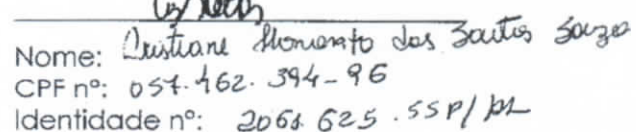 Nome: Cristiane Florencio dos Santos Souza
CPF nº: 057.462.394-96
Identidade nº: 2061.625.SSP/AL